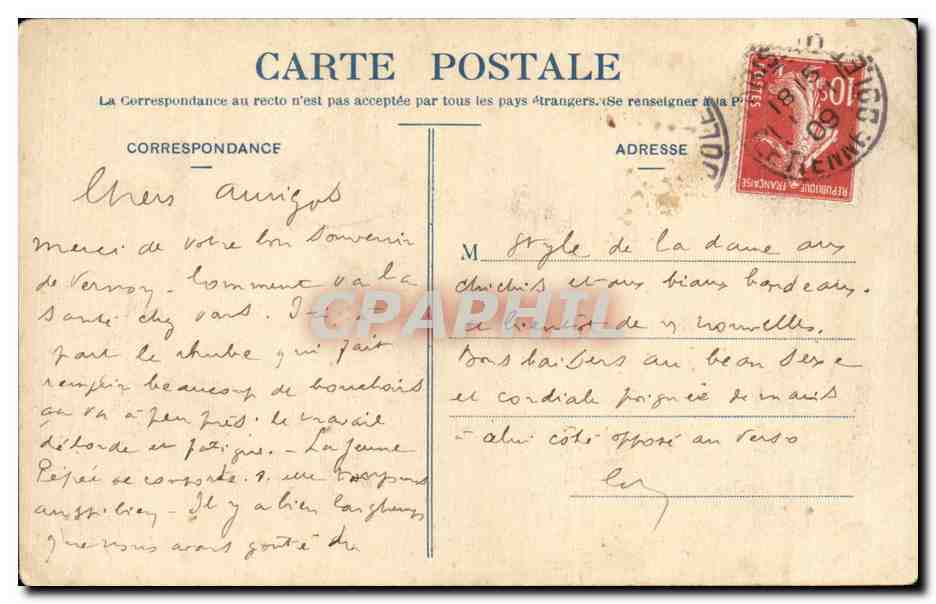 CARTE POSTALE
La Correspondance au recto n'est pas acceptée par tous les pays étrangers. (Se renseigner à la P
CORRESPONDANCE
ADRESSE
10c
POSTES
REPUBLIQUE FRANÇAISE
18 15
09
Chers Amigos
Merci de votre bon souvenir
de Vernon. Comment va la
santé chez vous. Ici à
part le rhube qui fait
remplir beaucoup de mouchoirs
ça va à peu près. Le travail
déborde et fatigue. La jeune
Pépée se comporte toujours
aussi bien. Il y a bien longtemps
que nous avons goûté du
M style de la dame aux
chichis et aux biaux bordeaux.
et bientôt de v nouvelles.
Bons baisers au beau sexe
et cordiale poignée de mains
à celui côté opposé au verso
CPAPHIL